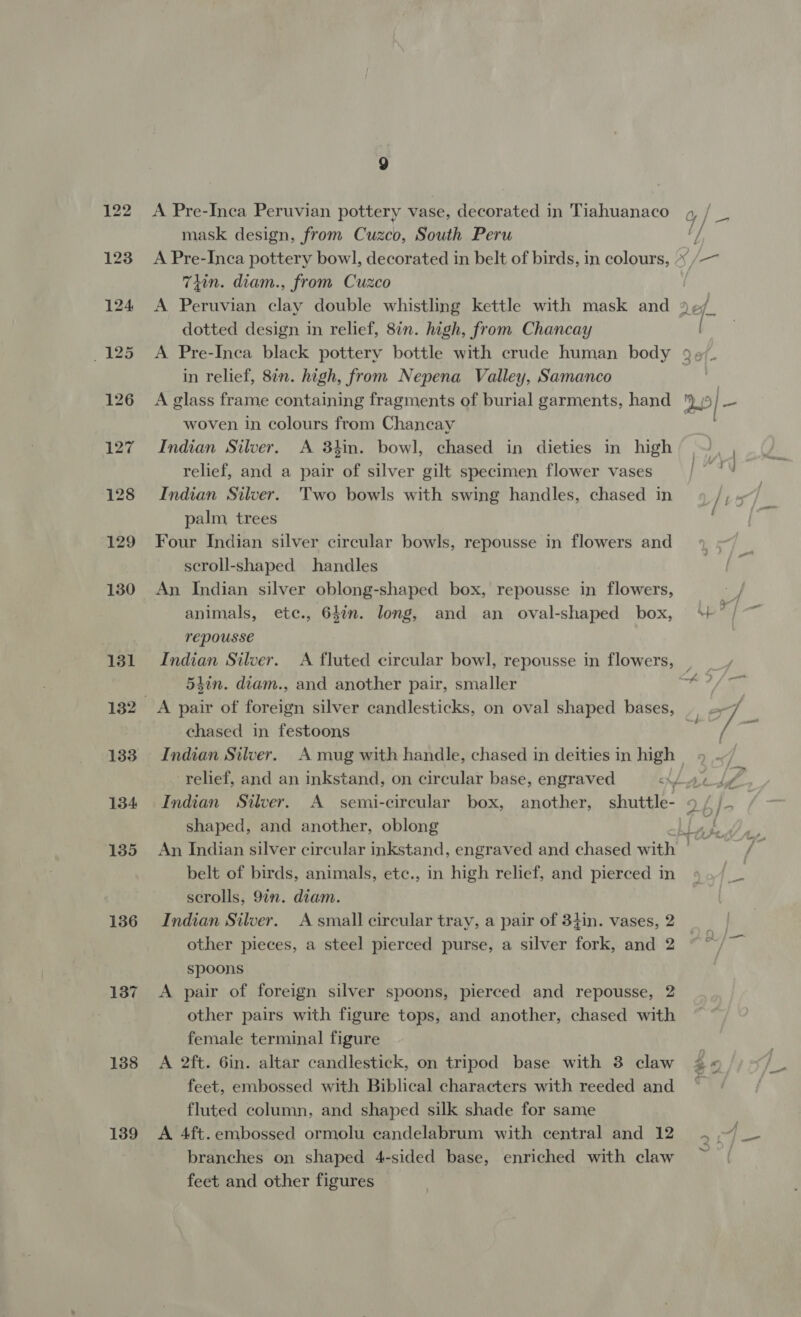 9
122 A Pre-Inca Peruvian pottery vase, decorated in Tiahuanaco
mask design, from Cuzco, South Peru
123 A Pre-Inca pottery bowl, decorated in belt of birds, in colours,
7½in. diam., from Cuzco
124 A Peruvian clay double whistling kettle with mask and
dotted design in relief, 8in. high, from Chancay
125 A Pre-Inca black pottery bottle with crude human body
in relief, 8in. high, from Nepena Valley, Samanco
126 A glass frame containing fragments of burial garments, hand
woven in colours from Chancay
127 Indian Silver. A 3½in. bowl, chased in dieties in high
relief, and a pair of silver gilt specimen flower vases
128 Indian Silver. Two bowls with swing handles, chased in
palm trees
129 Four Indian silver circular bowls, repousse in flowers and
scroll-shaped handles
130 An Indian silver oblong-shaped box, repousse in flowers,
animals, etc., 6½in. long, and an oval-shaped box,
repousse
131 Indian Silver. A fluted circular bowl, repousse in flowers,
5½in. diam., and another pair, smaller
132 A pair of foreign silver candlesticks, on oval shaped bases,
chased in festoons
133 Indian Silver. A mug with handle, chased in deities in high
relief, and an inkstand, on circular base, engraved
134 Indian Silver. A semi-circular box, another, shuttle-
shaped, and another, oblong
135 An Indian silver circular inkstand, engraved and chased with
belt of birds, animals, etc., in high relief, and pierced in
scrolls, 9in. diam.
136 Indian Silver. A small circular tray, a pair of 3¼in. vases, 2
other pieces, a steel pierced purse, a silver fork, and 2
spoons
137 A pair of foreign silver spoons, pierced and repousse, 2
other pairs with figure tops, and another, chased with
female terminal figure
138 A 2ft. 6in. altar candlestick, on tripod base with 3 claw
feet, embossed with Biblical characters with reeded and
fluted column, and shaped silk shade for same
139 A 4ft. embossed ormolu candelabrum with central and 12
branches on shaped 4-sided base, enriched with claw
feet and other figures